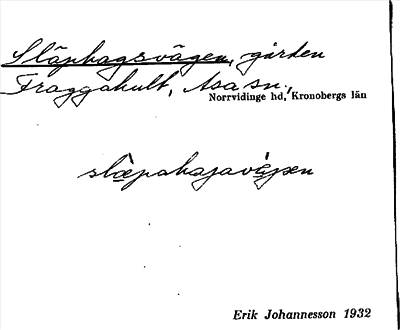 Släphagsvägen, gården
Fraggahult, Asa sn.,
Norrvidinge hd, Kronobergs län
slæpahajavæjsen
Erik Johannesson 1932